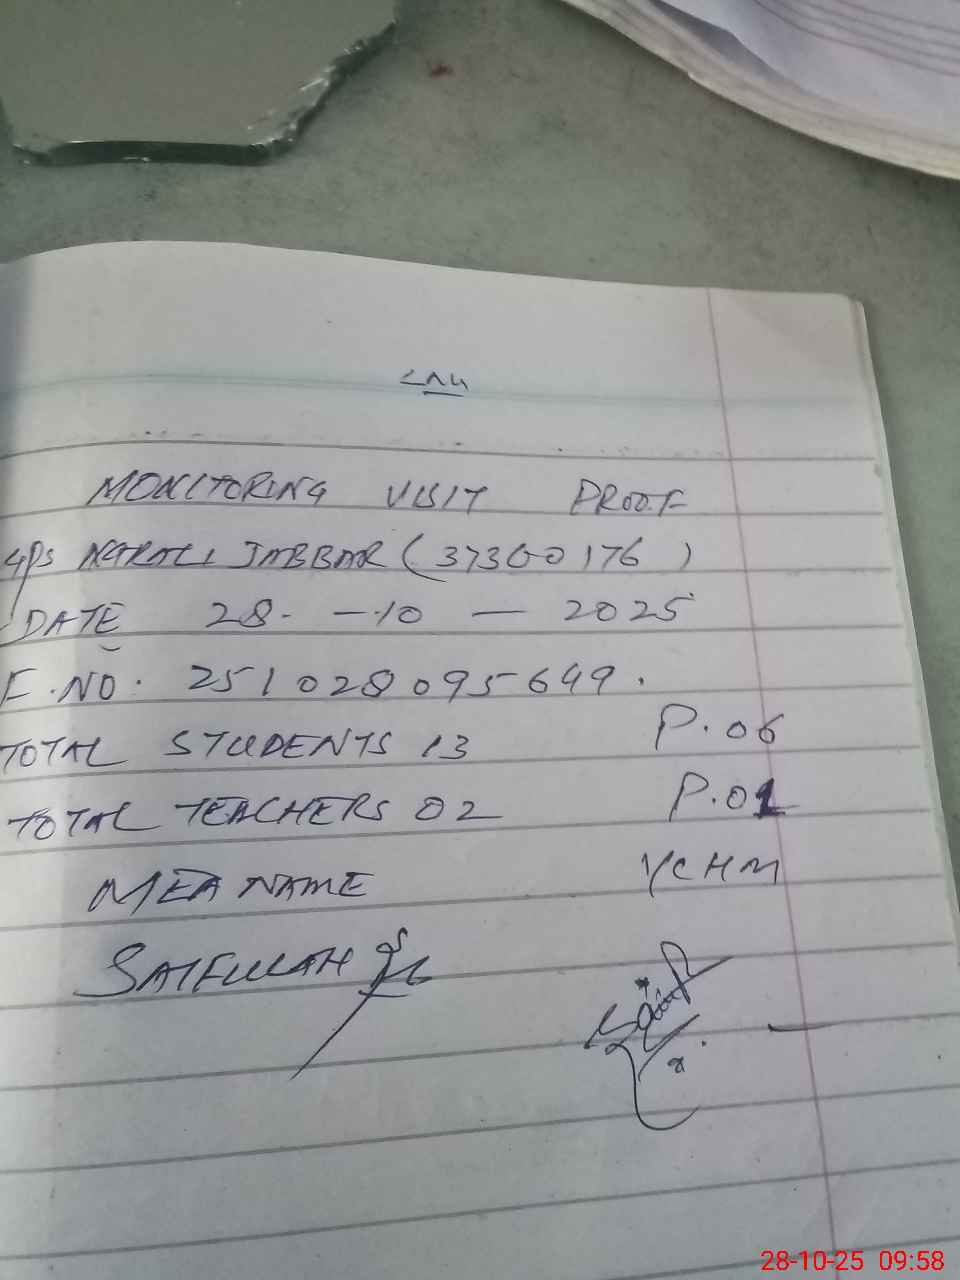 MONITORING VISIT PROOF
GPS JABBAR (37300176)
DATE 28- - 10 - 2025
F.NO. 251028095649.
TOTAL STUDENTS 13 P.06
TOTAL TEACHERS 02 P.01
MEA NAME
SAIFULLAH
28-10-25 09:58